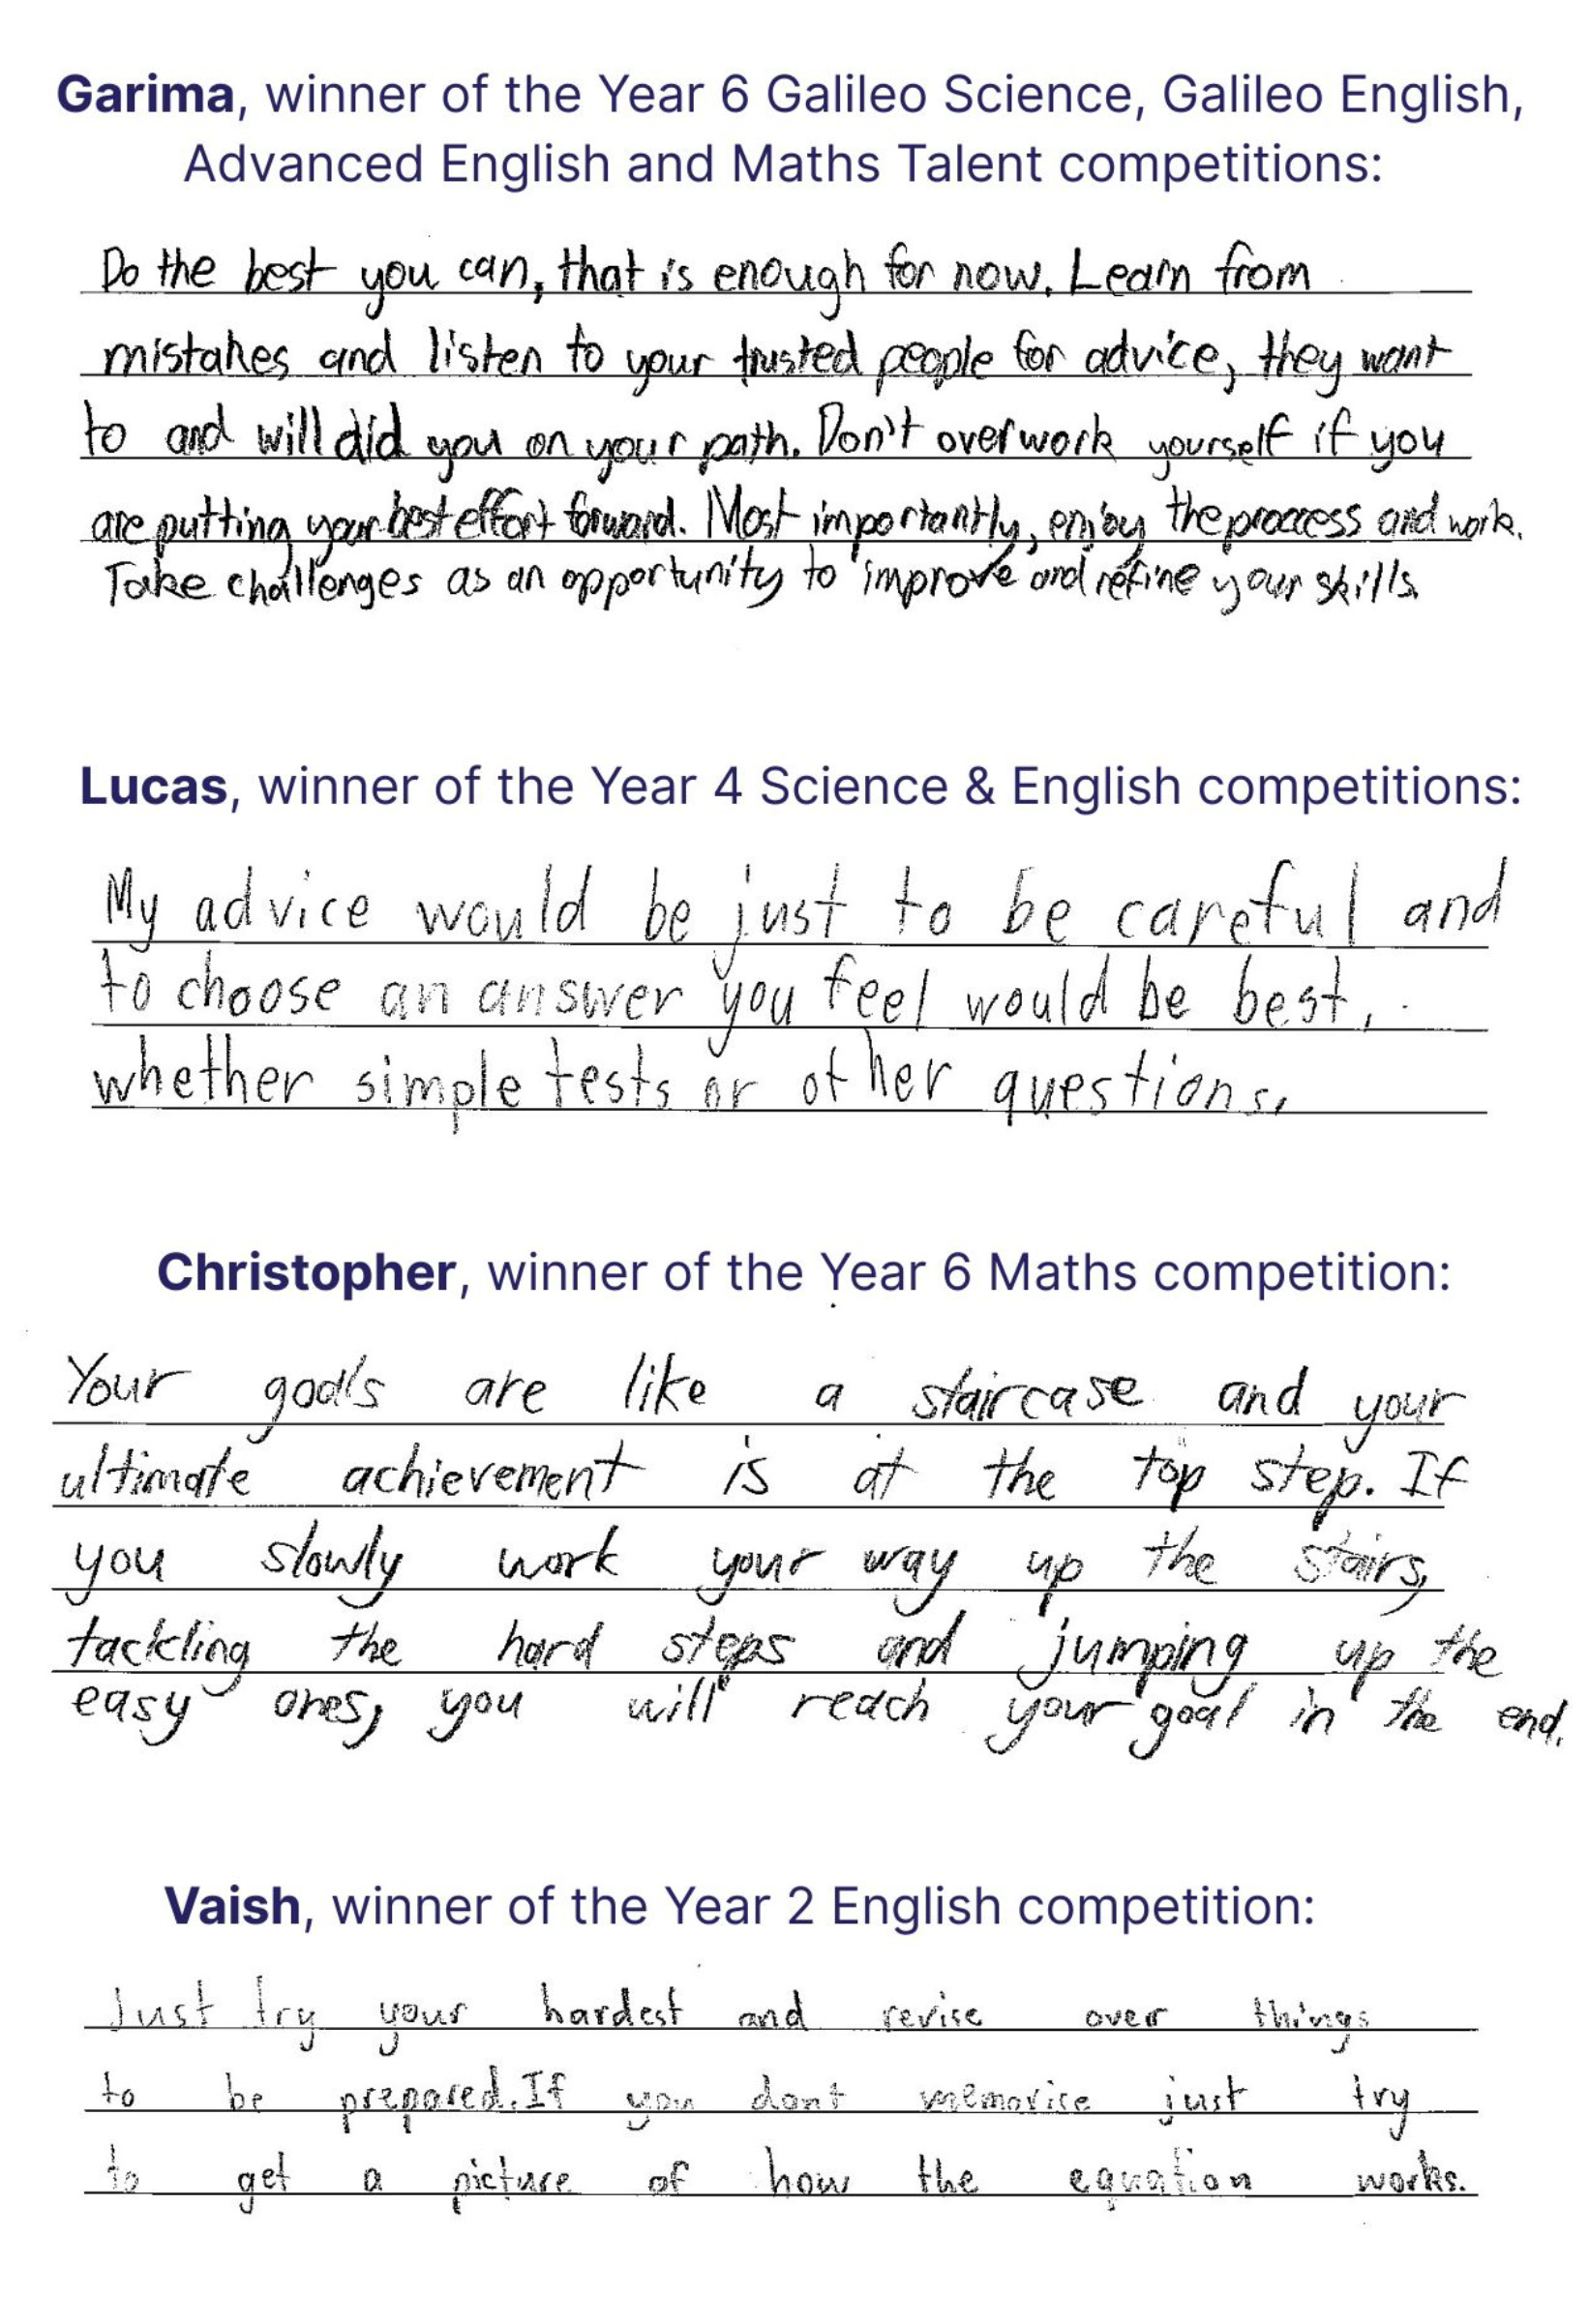 Garima, winner of the Year 6 Galileo Science, Galileo English,
Advanced English and Maths Talent competitions:
Do the best you can, that is enough for now. Learn from
mistakes and listen to your trusted people for advice, they want
to and will did you on your path. Don't overwork yourself if you
are putting your best effort forward. Most importantly, enjoy the proccess and work.
Take challenges as an opportunity to improve and refine your skills.
Lucas, winner of the Year 4 Science & English competitions:
My advice would be just to be careful and
to choose an answer you feel would be best,
whether simple tests or other questions.
Christopher, winner of the Year 6 Maths competition:
Your goals are like a staircase and your
ultimate achievement is at the top step. If
you slowly work your way up the stairs,
tackling the hard steps and jumping up the
easy ones, you will reach your goal in the end.
Vaish, winner of the Year 2 English competition:
Just try your hardest and revise over things
to be prepared. If you dont memorise just try
to get a picture of how the equation works.